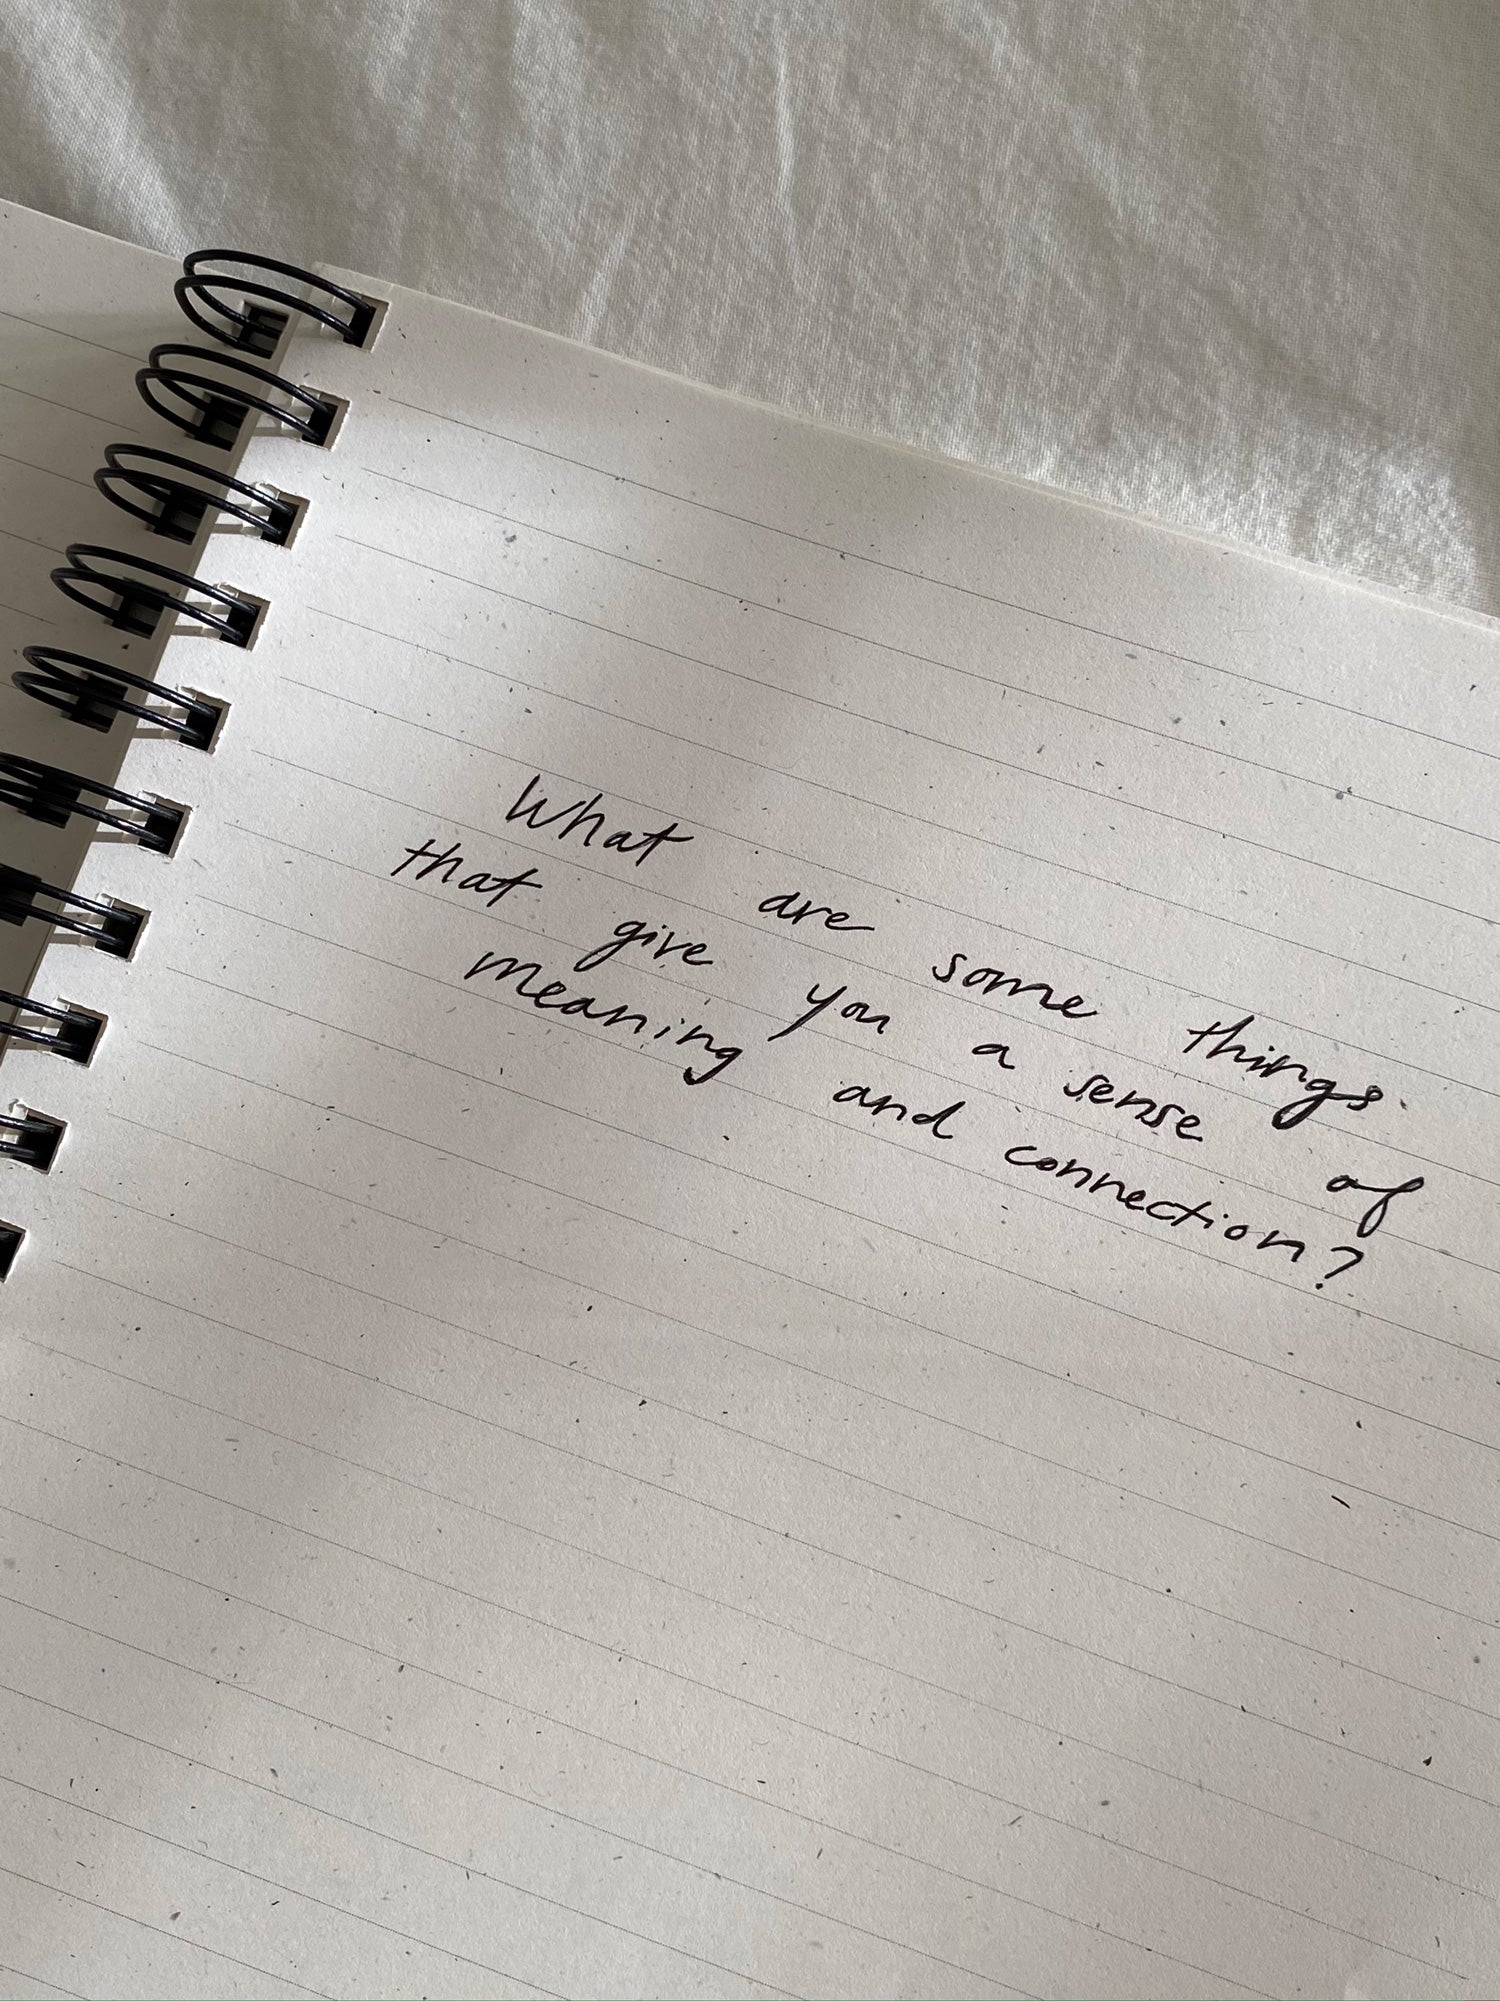 What are some things
that give you a sense of
meaning and connection?